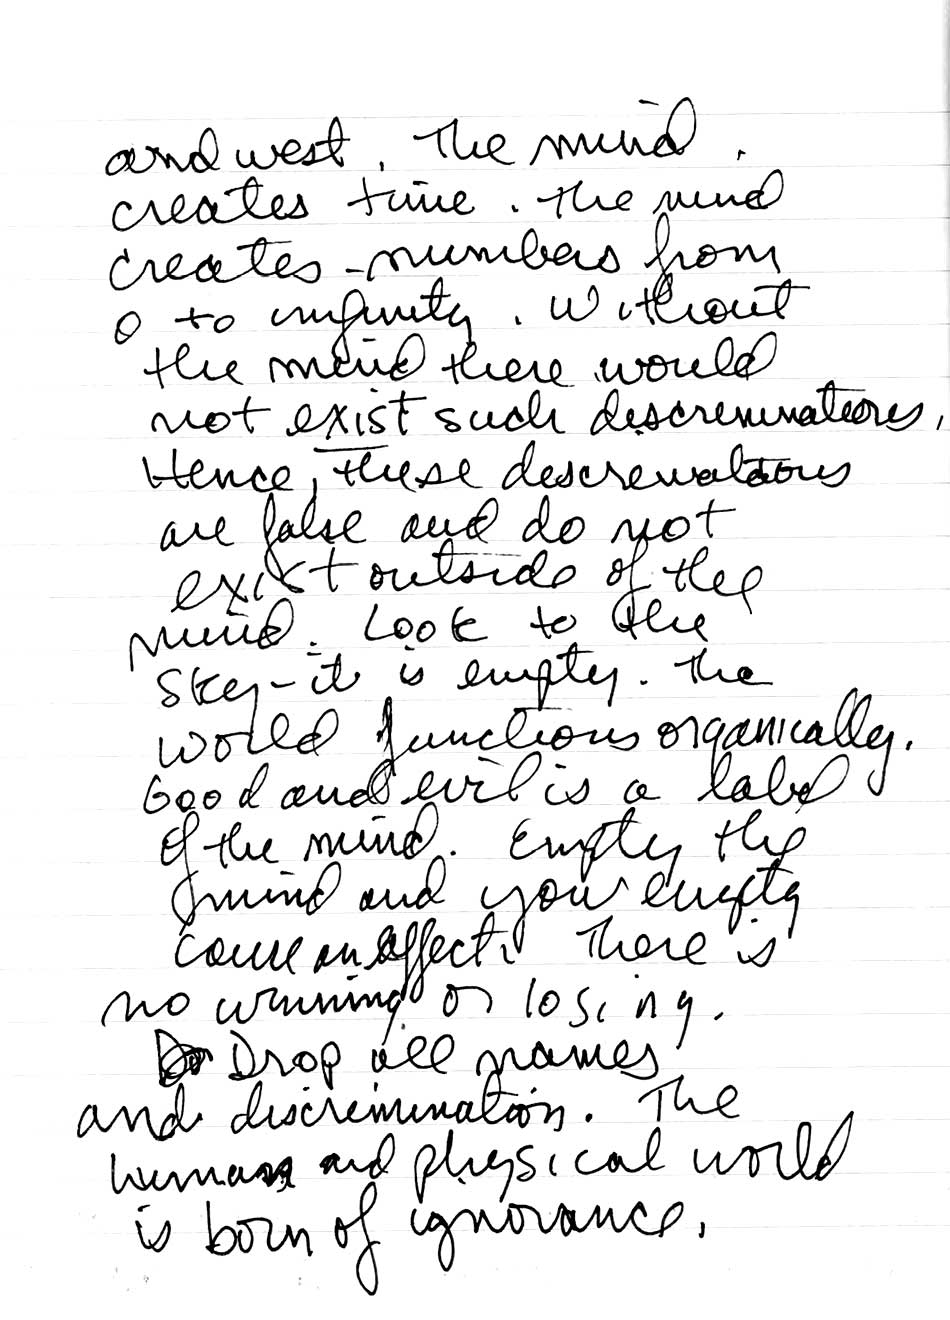 and west. The mind
creates time. the mind
creates numbers from
0 to infinity. Without
the mind there would
not exist such discreminations.
Hence, these descrewations
are false and do not
exist outside of the
mind. Look to the
sky - it is empty. The
world functions organically.
Good and evil is a label
of the mind. Empty the
mind and your empty
cause an effect. There is
no winning or losing.
Drop all names
and discrimination. The
human and physical world
is born of ignorance.